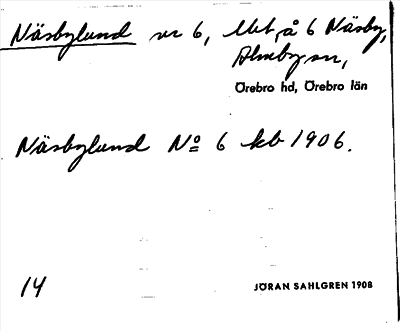 Näsbylund nr 6, Utst. å 6 Näsby,
Almby sn,
Örebro hd, Örebro län
Näsbylund No 6 kb 1906.
14
JÖRAN SAHLGREN 1908